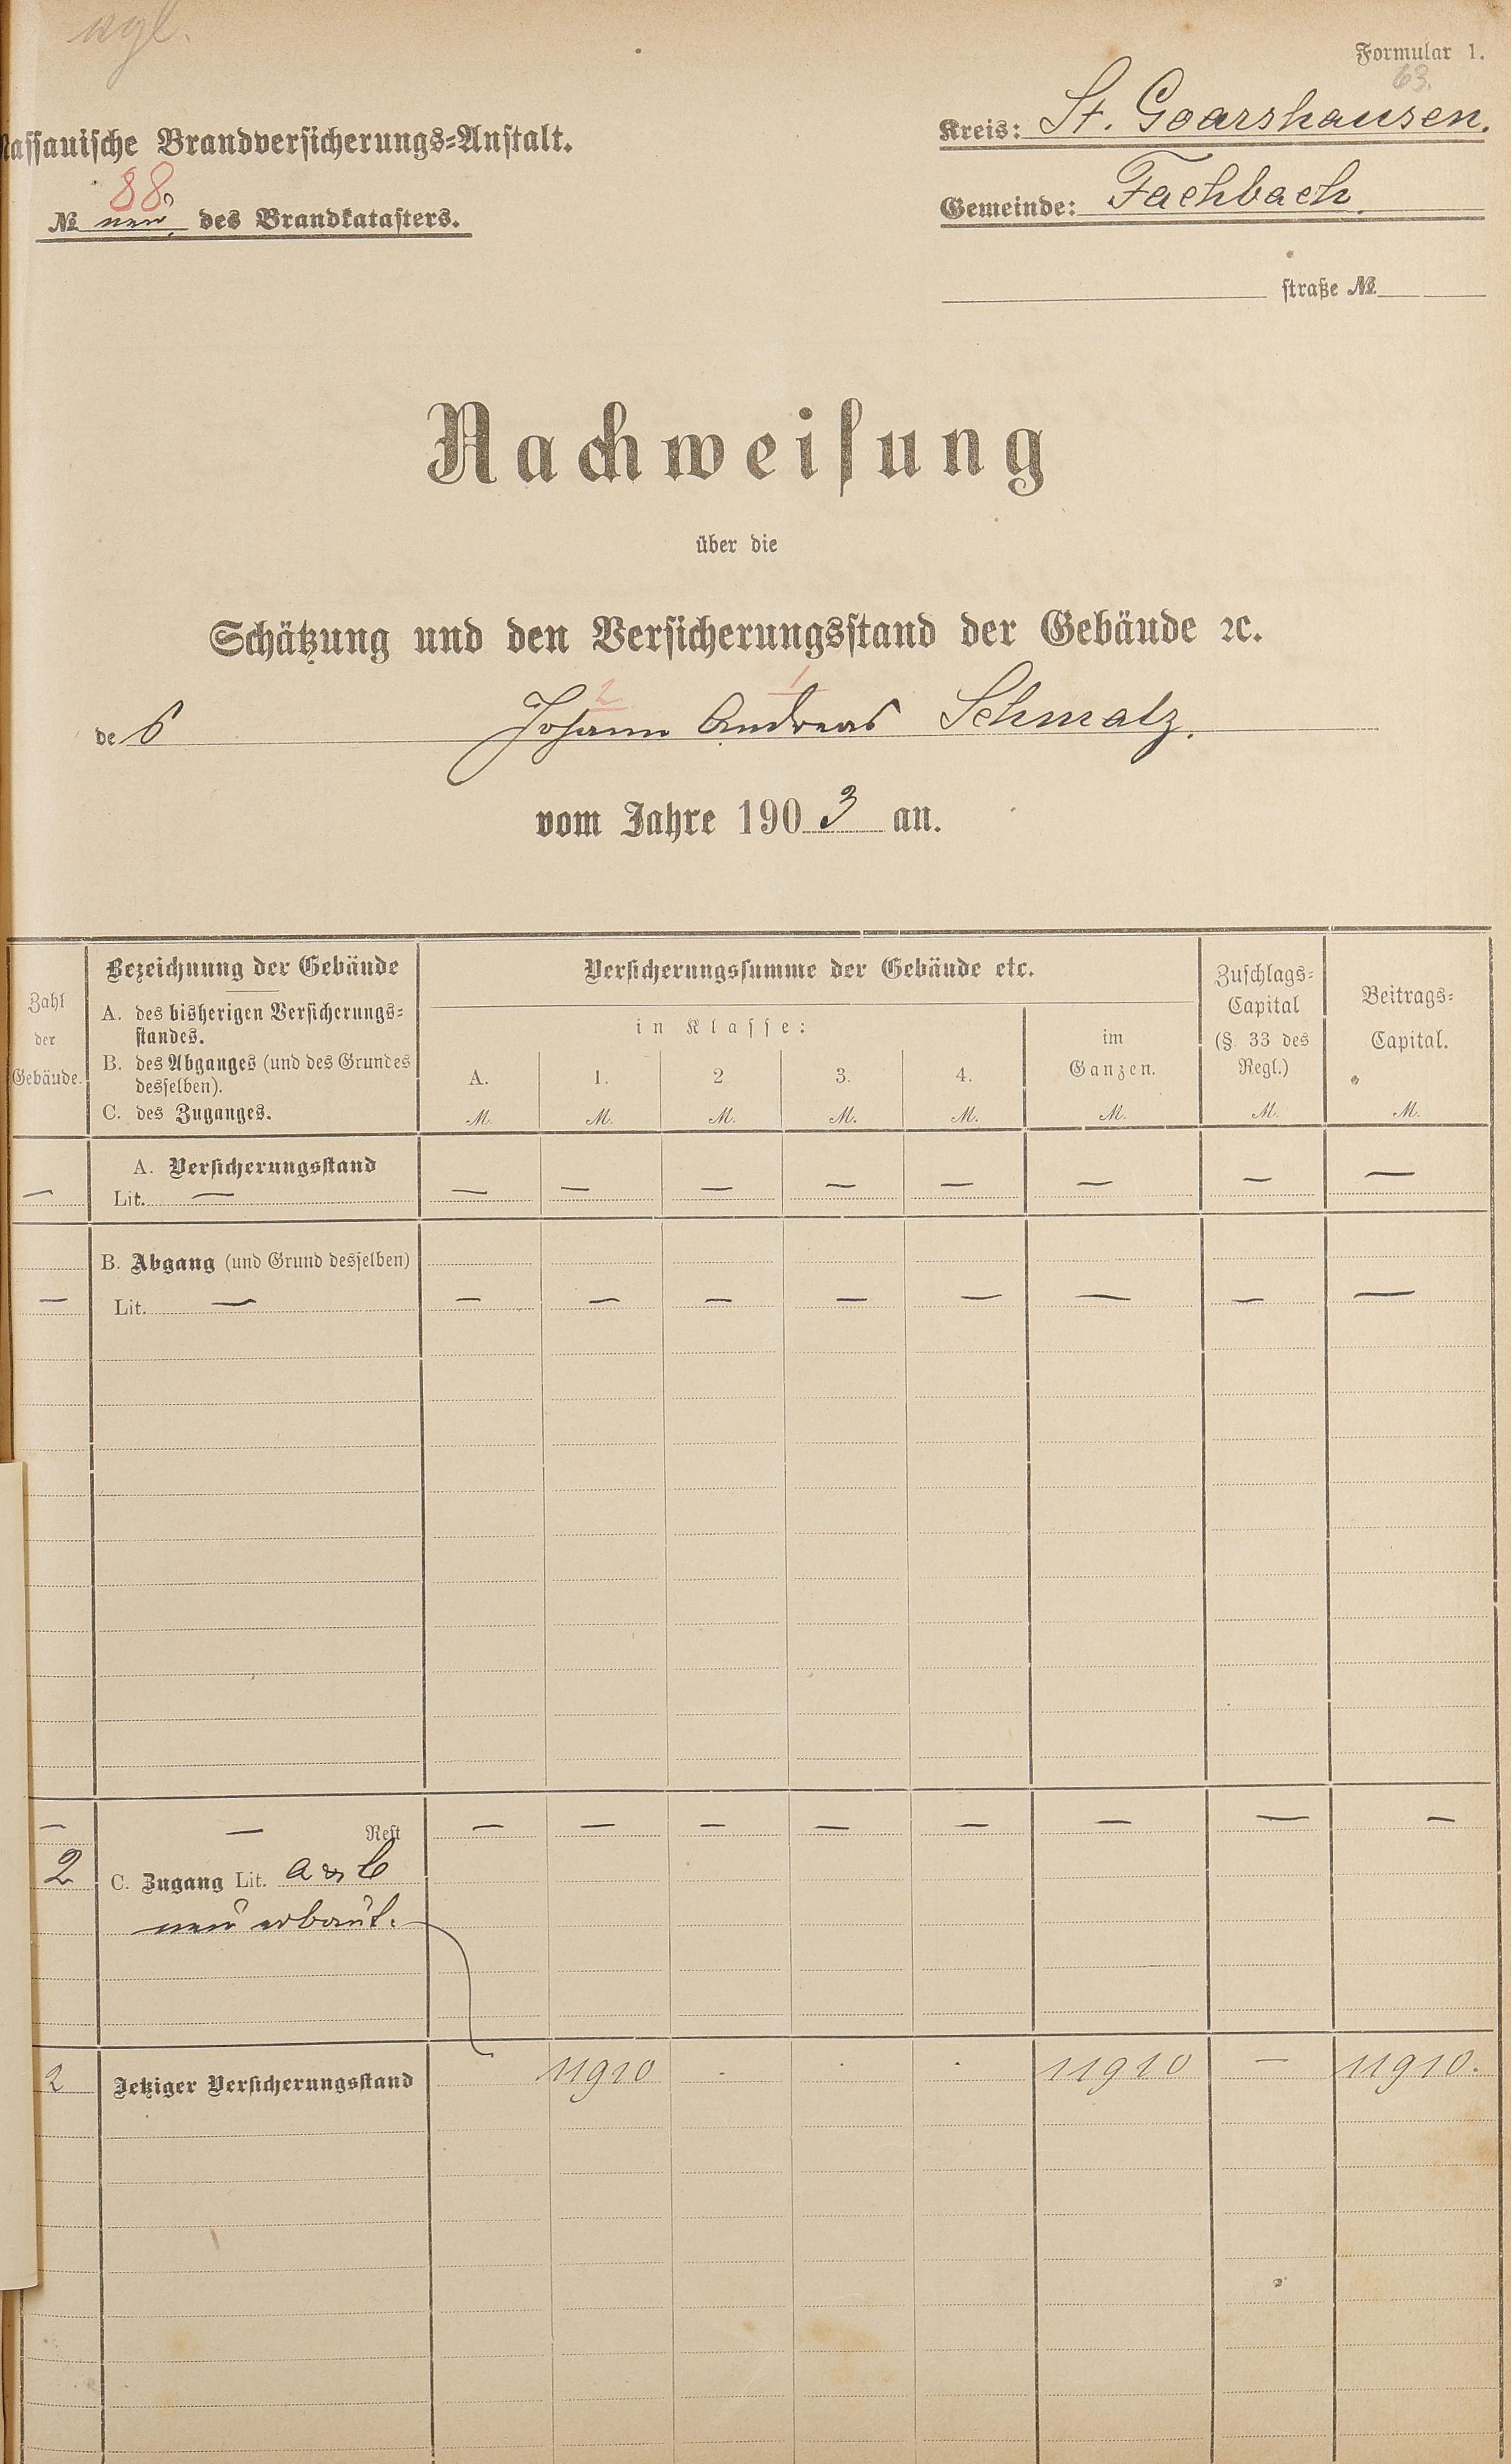 vgl.
Formular 1.
63.
Nassauische Brandversicherungs-Anstalt.
Kreis: St. Goarshausen.
88.
№ neu, des Brandkatasters.
Gemeinde: Fachbach.
straße №
Nachweisung
über die
Schätzung und den Versicherungsstand der Gebäude ꝛc.
2 1
des Johann Andreas Schmalz.
vom Jahre 1903 an.
Zahl der Gebäude.
Bezeichnung der Gebäude
A. des bisherigen Versicherungs-
standes.
B. des Abganges (und des Grundes
desselben).
C. des Zuganges.
Versicherungssumme der Gebäude etc.
in Klasse:
A. 1. 2 3. 4.
M. M. M. M. M.
im
Ganzen.
M.
Zuschlags-
Capital
(§. 33 des
Regl.)
M.
Beitrags-
Capital.
M.
A. Versicherungsstand
— Lit. — — — — — — — — —
B. Abgang (und Grund desselben)
— Lit. — — — — — — — — —
— — Rest — — — — — — — —
2 C. Zugang Lit. a & b
neu erbaut.
2 Jetziger Versicherungsstand 11910 . . . 11910 — 11910.